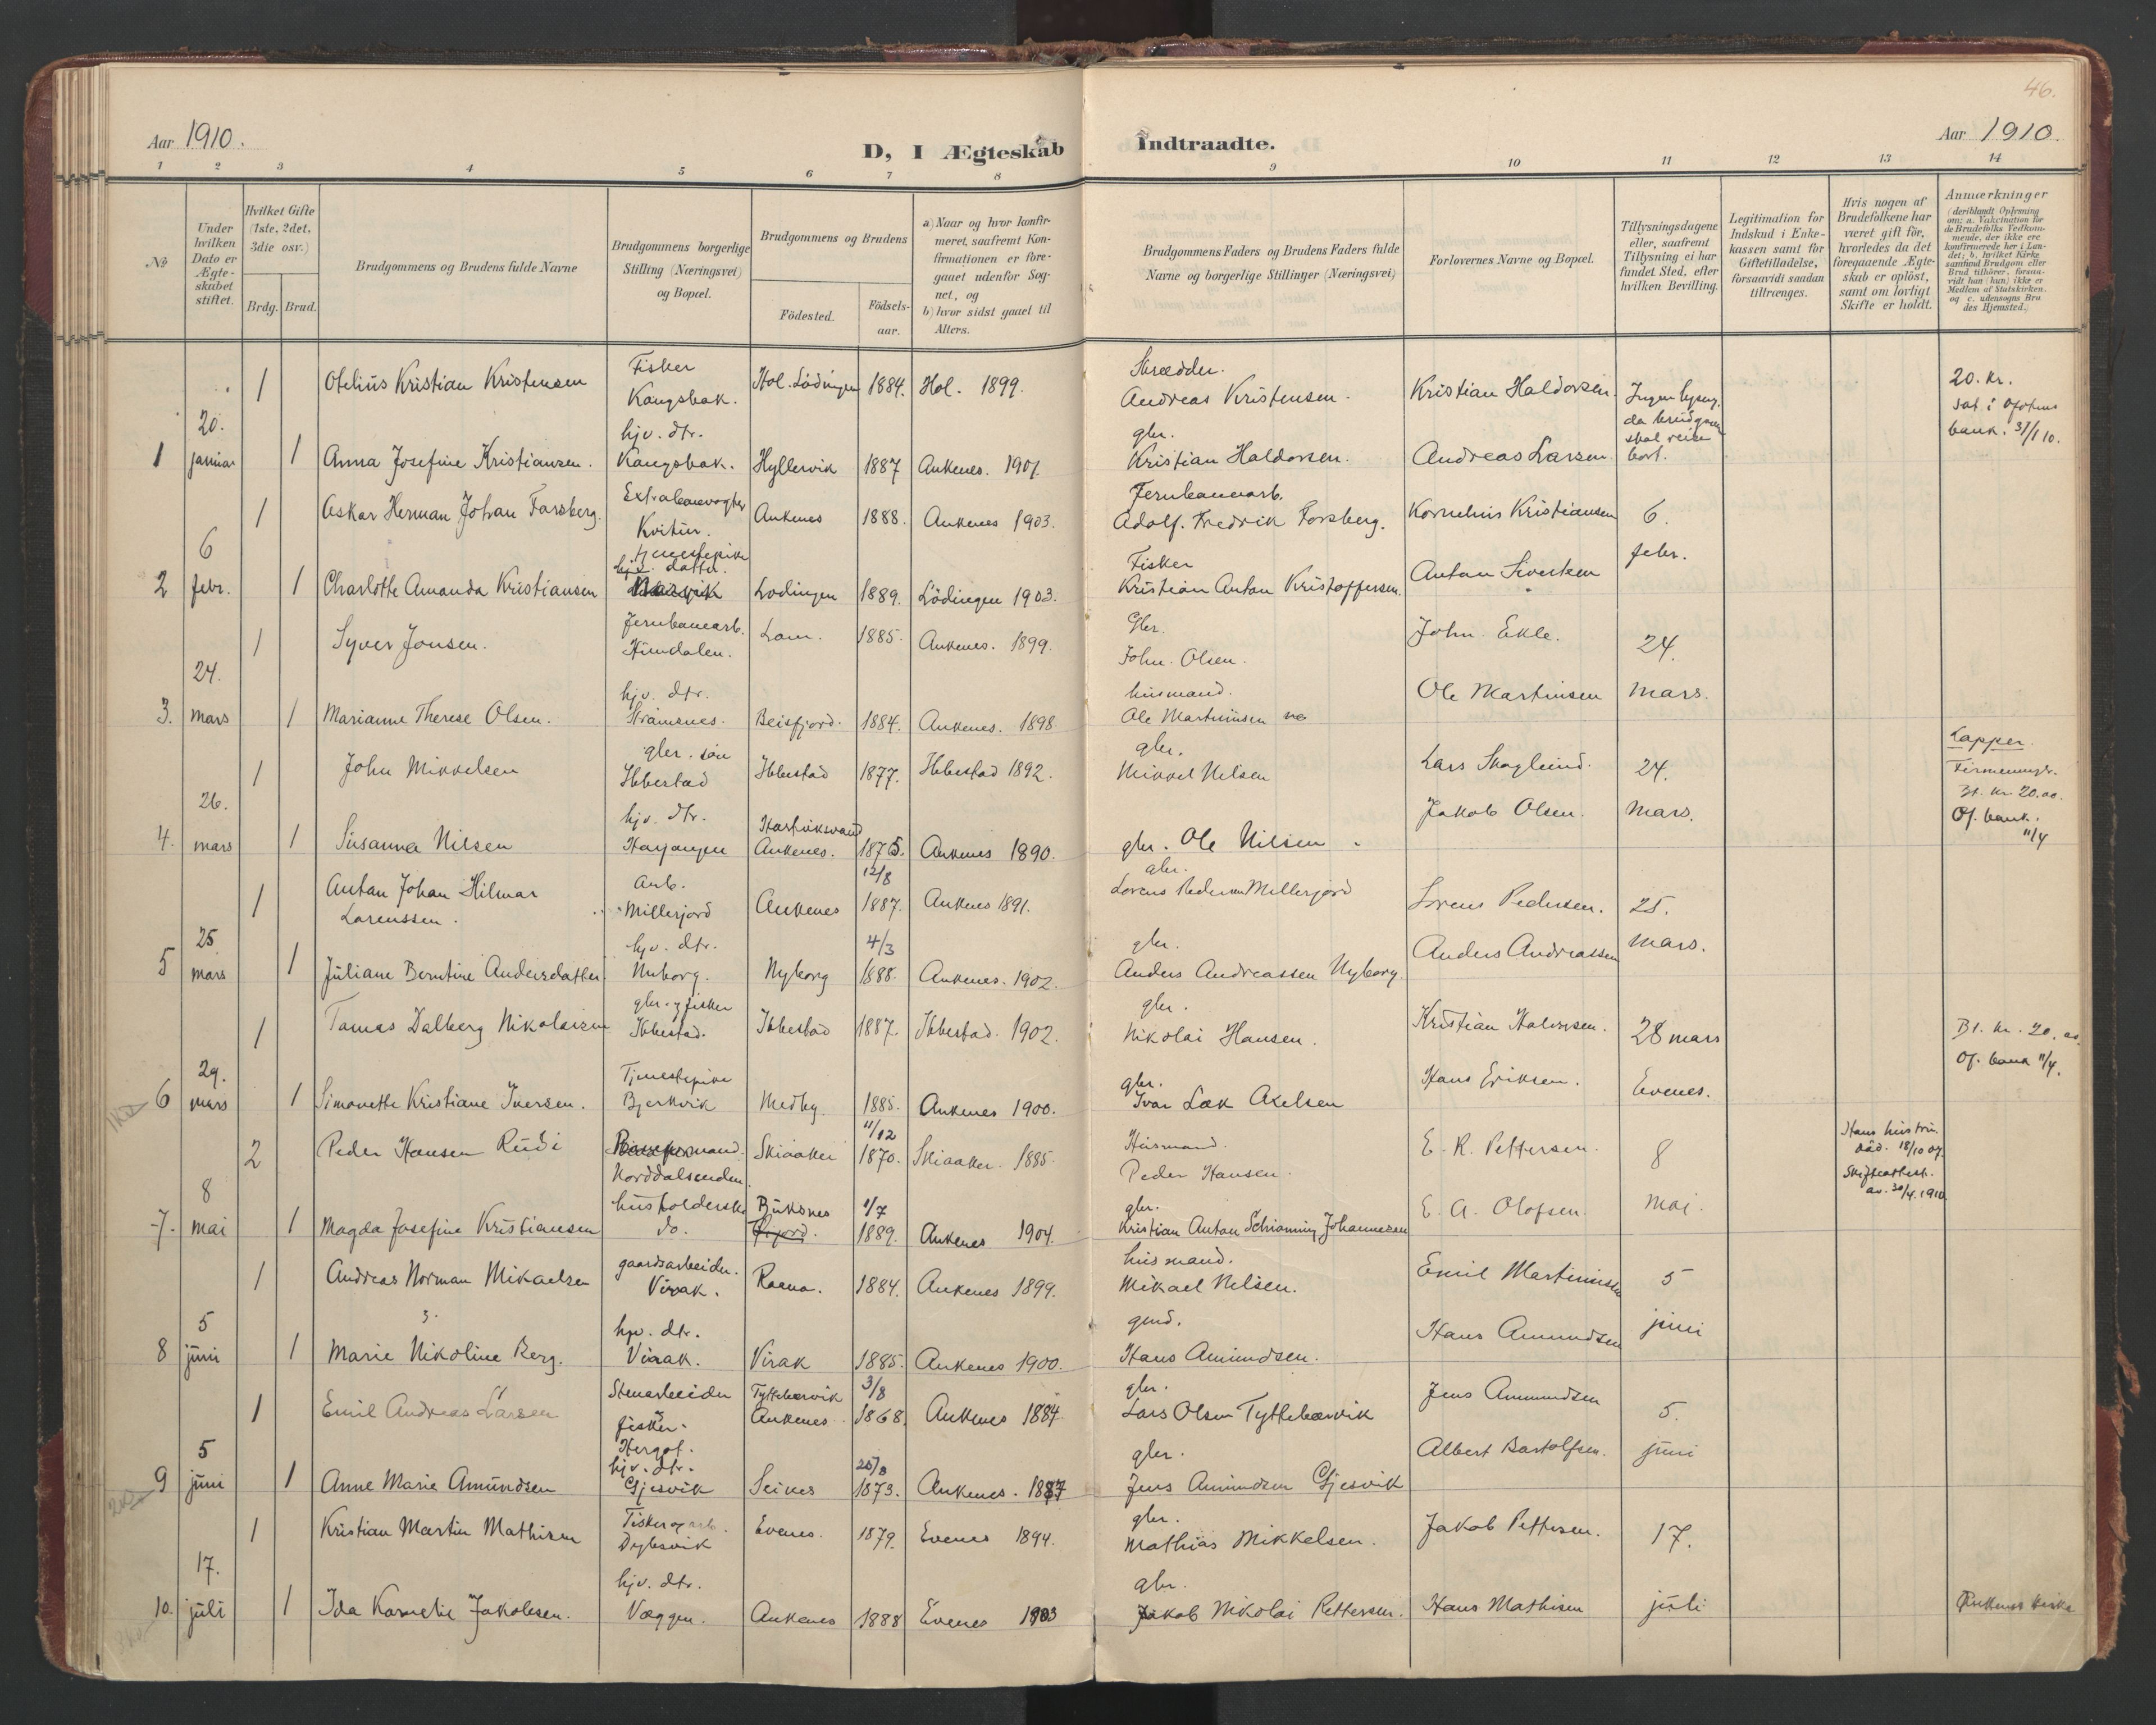 46.
Aar 1910.
D, I Ægteskab Indtraadte.
Aar 1910.
1 2 3 4 5 6 7 8 9 10 11 12 13 14
No
Under hvilken Dato er Ægteskabet stiftet.
Hvilket Gifte (1ste, 2det, 3die osv.)
Brdg. Brud.
Brudgommens og Brudens fulde Navne
Brudgommens borgerlige Stilling (Næringsvei) og Bopæl.
Brudgommens og Brudens
Födested. Födsels-aar.
a) Naar og hvor konfirmeret, saafremt Konfirmationen er foregaaet udenfor Sognet, og
b) hvor sidst gaaet til Alters.
Brudgommens Faders og Brudens Faders fulde Navne og borgerlige Stillinger (Næringsvei)
Forlovernes Navne og Bopæl.
Tillysningsdagene eller, saafremt Tillysning ei har fundet Sted, efter hvilken Bevilling.
Legitimation for Indskud i Enkekassen samt for Giftetilladelse, forsaavidt saadan tiltrænges.
Hvis nogen af Brudefolkene har været gift för, hvorledes da det foregaaende Ægteskab er oplöst, samt om lovligt Skifte er holdt.
Anmærkninger
(deriblandt Oplysning om: a. Vakcination for de Brudefolks Vedkommende, der ikke ere konfirmerede her i Landet; b. hvilket Kirkesamfund Brudgom eller Brud tilhörer, forsaavidt han (hun) ikke er Medlem af Statskirken, og c. udensogns Brudes Hjemsted.)
1 Otelius Kristian Kristensen Fisker Kongsbak. Hol. Lödingen 1884. Hol. 1899. Skrædder. Andreas Kristensen. Kristian Haldorsen. Ingen lysng. da brudgom skal reise bort. 20. kr. sat i Ofotens bank. 31/1 10.
1 20. januar 1 Anna Josefine Kristiansen. hjv. dtr. Kongsbak. Hyllervik 1887 Ankenes. 1901. gbr. Kristian Haldorsen. Andreas Larsen
1 Oskar Herman Johan Forsberg. Extrabanevogter Kvitur. Ankenes 1888. Ankenes 1903. Jernbanearb. Adolf. Fredrik Forsberg. Kornelius Kristiansen 6. febr.
2 6 febr. 1 Charlotte Amanda Kristiansen tjenestepike hj. datter. Narvik Lodingen 1889. Lödingen 1903. Fisker Kristian Anton Kristoffersen. Anton Sivertsen
1 Syver Jonsen. Jernbanearb. Hundalen. Lom. 1885. Ankenes. 1899. Gbr. John. Olsen. John. Ekle. 24. mars.
3. 24. mars 1 Marianne Therese Olsen. hjv. dtr. Strømsnes. Beisfjord. 1884. Ankenes. 1898. husmand. Ole Martinusen Ole Martinsen
1 John Mikkelsen gbr. søn Ibbestad Ibbestad 1877. Ibbestad 1892. gbr. Mikkel Nilsen Lars Skoglund. 24. mars. Lapper. Bt. kr. 20.00. Of. bank. 11/4
4. 26. mars 1 Susanna Nilsen hjv. dtr. Herjangen Hartviksvand Ankenes. 1875. Ankenes 1890. gbr. Ole Nilsen Jakob Olsen.
1 Anton Johan Hilmar Lorenssen. Arb. Millerjord Ankenes 12/8 1887. Ankenes 1891. gbr. Lorens Pedersen Millerjord Lorens Pedersen. 25. mars.
5 25 mars 1 Juliane Berntine Andersdatter hjv. dtr. Nyborg. Nyborg 4/3 1888. Ankenes. 1902. gbr. Anders Andreassen Nyborg. Anders Andreassen
1 Tomas Dalberg Nikolaisen gbr. og fisker Ibbestad. Ibbestad 1887. Ibbestad. 1902. gbr. Nikolai Hansen. Kristian Halvorsen. 28 mars Evenes. Bt. kr. 20.00 Of. bank 11/4.
6 29. mars 1 Simonette Kristiane Iversen. Tjenestepike Bjerkvik Medby. 1885. Ankenes 1900. gbr. Ivar Lok Axelsen Hans Eriksen.
2 Peder Hansen Rudi Norddalsenden. Skiaaker 11/12 1870. Skiaaker. 1885. Husmand. Peder Hansen. E. R. Pettersen. 8 mai. Hans hustru död. 18/10 07. Skifteattest. av. 30/4. 1910
7. 8 mai 1 Magda Josefine Kristiansen husholderske do. Buksnes 1/7 1889. Ankenes 1904. gbr. Kristian Anton Schianning Johannesen E. A. Olofsen.
1 Andreas Norman Mikaelsen gaardsarbeider. Virak. Raena. 1884. Ankenes 1899. husmand. Mikael Nilsen. Emil Martinusen 5 juni
8 5 juni 1 Marie Nikoline Berg. hjv. dtr. Virak. Virak 1885. Ankenes 1900. gmd. Hans Amundsen. Hans Amundsen
1 Emil Andreas Larsen Stenarbeider og fisker. Hergot. Tyttebærvik Ankenes 3/8 1868. Ankenes 1884. gbr. Lars Olsen Tyttebærvik Jens Ammundsen 5. juni
9 5 juni 1 Anne Marie Amundsen hjv. dtr. Gjesvik Seines 25/8 1873. Ankenes. 1887 gbr. Jens Amundsen Gjesvik Albert Bartolfsen.
1 Kristian Martin Mathisen Fisker og arb. Dybsvik Evenes. 1879. Evenes 1894. gbr. Mathias Mikkelsen. Jakob Pettersen. 17. juli
10. 17. juli 1 Ida Kornelie Jakobsen. hjv. dtr. Væggen. Ankenes 1888 Evenes 1903 gbr. Jakob Nikolai Pettersen. Hans Mathisen Ankenes kirke